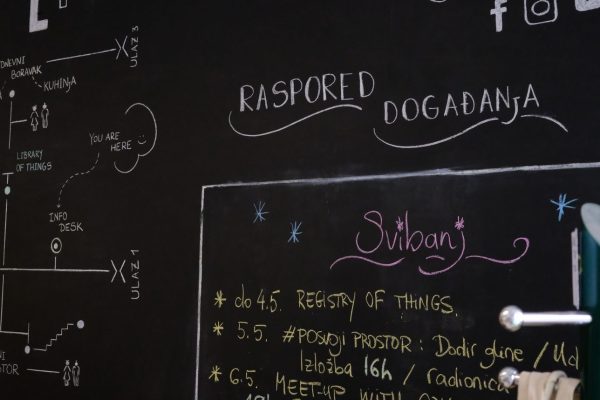 DNEVNI
BORAVAK
KUHINJA
ULAZ 3
YOU ARE
HERE
LIBRARY
OF THINGS
INFO
DESK
ULAZ 1
RASPORED DOGAĐANJA
Svibanj
* do 4.5. REGISTRY OF THINGS.
* 5.5. #POSVOJI PROSTOR : Dodir gline /
Izložba 16h / radionica
* 6.5. MEET-UP WITH